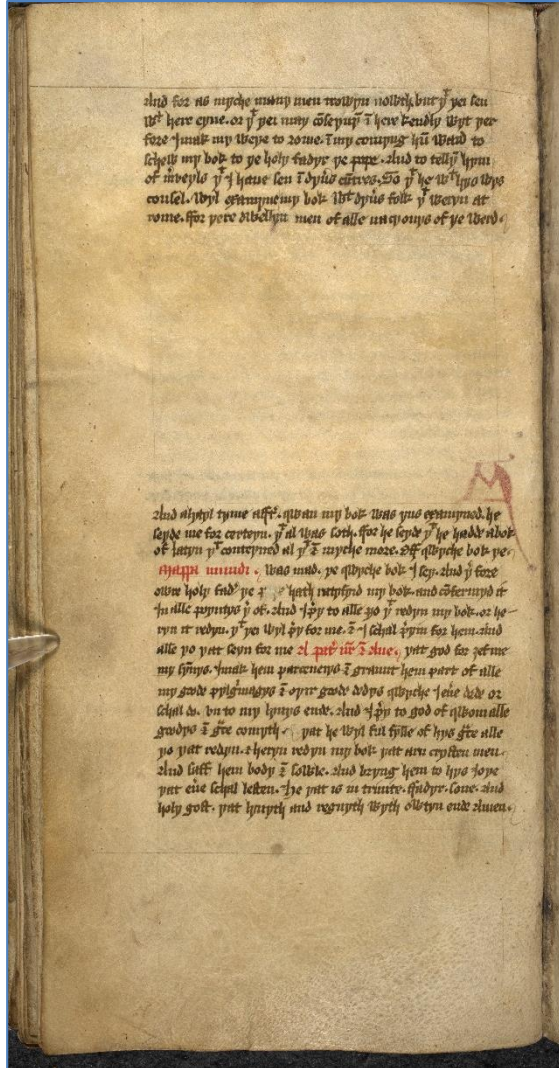 And for as myche many men trowyn nowth. but yͭ yei seu
wͭ here eyne. or yͭ yei may cōseyuyn̄ ī here kendly wyt yer
fore I mak my weye to rome. ī my comyng hū ward to
schew my bok to ye holy fadyr ye pape. And to tellyn̄ hym
of m̄veyls yͭ I haue sen ī dyūs cūtres. So yͭ he wͭ hys wys
counsel. wyl examyne my bok wͭ dyūs folk yͭ weryn at
rome. ffor yere dwellyn men of alle nacyonys of ye werd.
M
And alytyl tyme afft̄. qwan my bok was yus examyned. he
seyde me for certeyn. yͭ al was soth. ffor he seyde yͭ he hadde a bok
of latyn yͭ conteyned al yͭ & myche more. Off qwyche bok ye
Mappa mundi. was mad. ye qwyche bok I sey. And yͭ fore
owre holy fad̄ ye p hath ratyfyid my bok. and cōfermyd it
In alle poyntys yͭ of. And I p̄y to alle yo yͭ redyn my bok. or he
ryn it redyn. yͭ yei wyl p̄y for me. & I schal p̄yin for hem. And
alle yo yat seyn for me A pat̄ nr̄ & Aue. yat god for ȝef me
my synys. I mak hem parcenerys & graunt hem part of alle
my gode pylgͥmagys & oyir gode dedys qwyche I eūe dede or
schal do. vn to my lyuys ende. And I p̄y to god of qwom alle
godys & gͣce comyth yat he wyl ful fylle of hys gͣce alle
yo yat redyn. & heryn redyn my bok yat arn crysten men.
And saff hem body & sowle. And bryng hem to hys Ioye
yat eūe schal lesten. He yat is in trinite. ffadyr. sone. And
holy gost. yat lyuyth and regnyth wyth owtyn ende Amen.